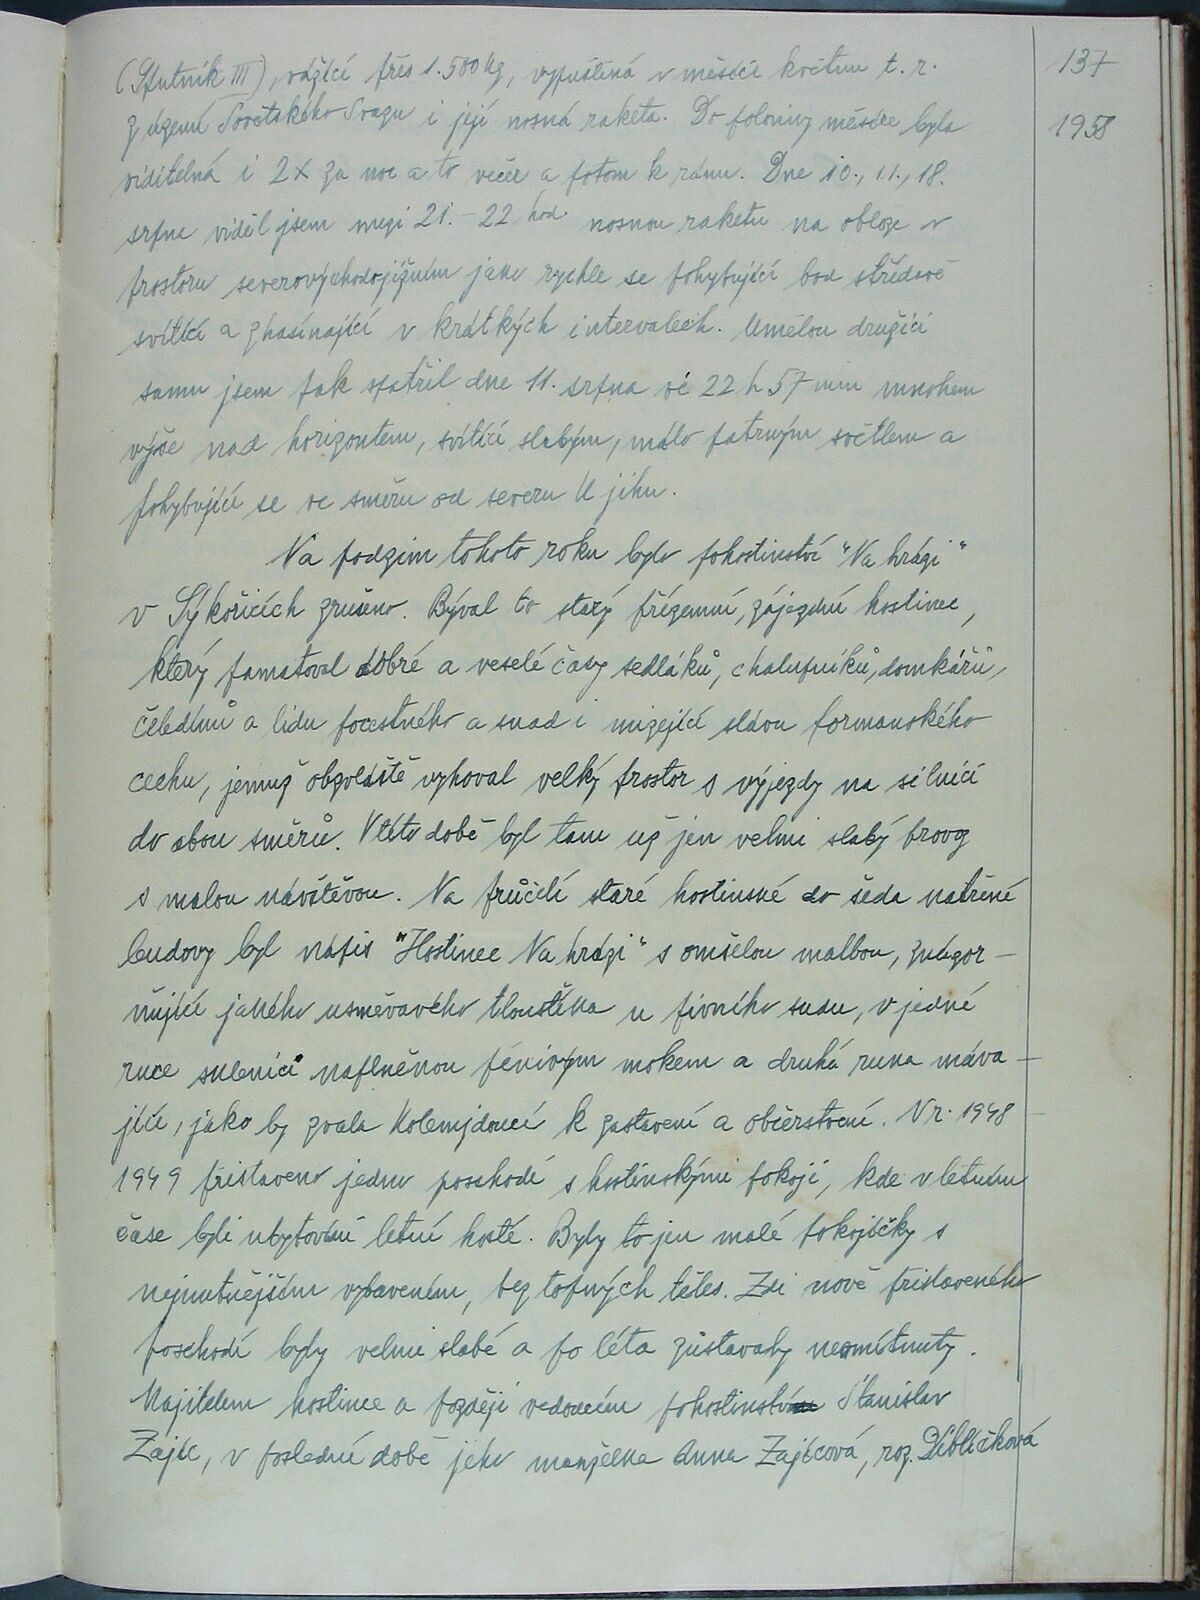 137
1958
(Sputnik III), vážící přes 1.500 kg, vypuštěná v měsíci květnu t. r.
z území Sovětského Svazu i její nosná raketa. Do poloviny měsíce byla
viditelná i 2x za noc a to večer a potom k ránu. Dne 10., 11., 18.
srpna viděl jsem mezi 21. - 22 hod nosnou raketu na obloze v
prostoru severovýchodojižním jako rychle se pohybující bod střídavě
svítící a zhasínající v krátkých intervalech. Umělou družici
samu jsem pak spatřil dne 11. srpna ve 22 h 57 min mnohem
výše nad horizontem, svítící slabým, málo patrným světlem a
pohybující se ve směru od severu k jihu.
Na podzim tohoto roku bylo pohostinství "Na hrázi"
v Sýkořicích zrušeno. Býval to starý přízemní, zájezdní hostinec,
který pamatoval dobré a veselé časy sedláků, chalupníků, domkářů,
čeledínů a lidu pocestného a snad i mizející slávu formanského
cechu, jemuž obzvláště vyhoval velký prostor s výjezdy na silnici
do obou směrů. V této době byl tam už jen velmi slabý provoz
s malou návštěvou. Na průčelí staré hostinské do šeda natřené
budovy byl nápis "Hostinec Na hrázi" s omšelou malbou, znázor-
ňující jakého usměvavého tloustíka u pivního sudu, v jedné
ruce sklenici naplněnou pěnivým mokem a druhá ruka máva-
jící, jako by zvala kolemjdoucí k zastavení a občerstvení. V r. 1948-
1949 přistaveno jedno poschodí s hostinskými pokoji, kde v letním
čase byli ubytováni letní hosté. Byly to jen malé pokojíčky s
nejnutnějším vybavením, bez topných těles. Zdi nově přistaveného
poschodí byly velmi slabé a po léta zůstavaly neomítnuty.
Majitelem hostince a později vedoucím pohostinství Stanislav
Zajíc, v poslední době jeho manželka Anna Zajícová, roz. Diblíčková